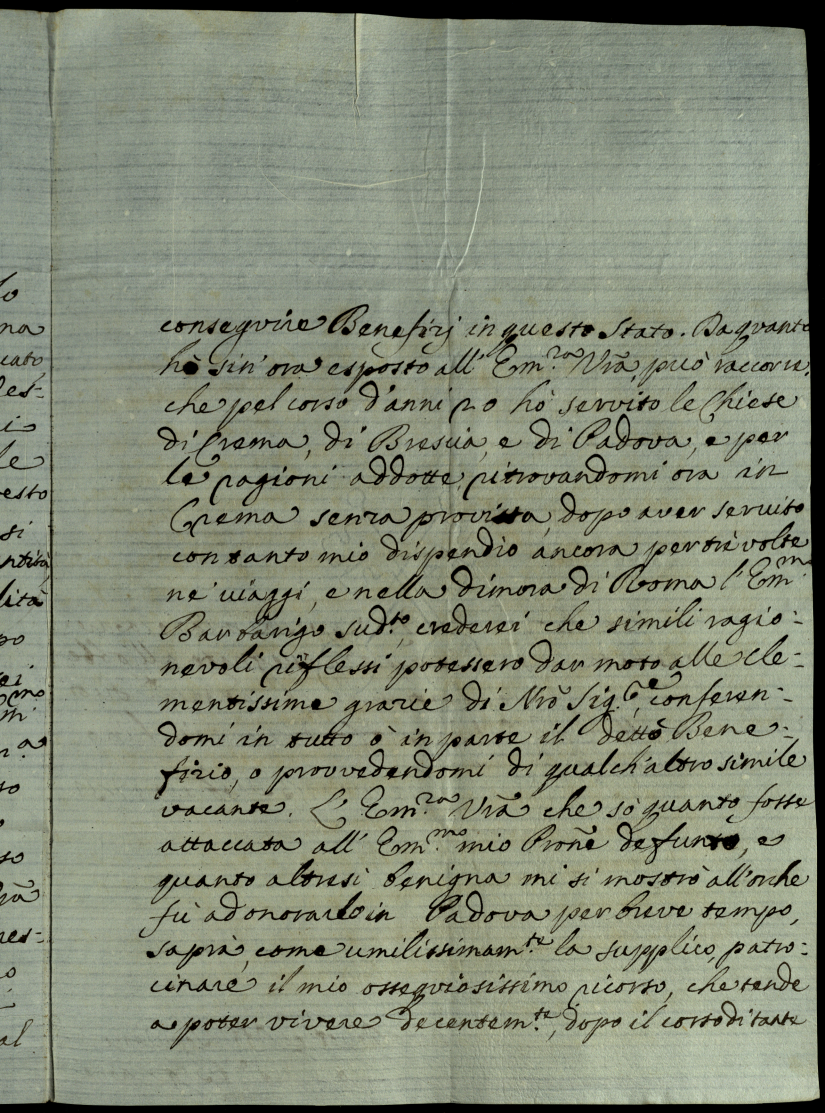 conseguire Benefizj in questo Stato. Da quanto
hò sin'ora esposto all' Em.ᶻᵃ Vrã, può raccorre,
che pel corso d'anni 20 hò servito le Chiese
di Crema, di Brescia, e di Padova, e per
le ragioni addotte, ritrovandomi ora in
Crema senza provista, dopo aver servito
con tanto mio dispendio ancora per trè volte
ne' viaggi, e nella dimora di Roma l' Em.ᵐᵒ
Barbarigo sud.ᵗᵒ, crederei che simili ragio:
nevoli riflessi potessero dar moto alle cle:
mentissime grazie di Nrõ Sig.ʳᵉ, conferen:
domi in tutto ò in parte il detto Bene:
fizio, o provvedendomi di qualch'altro simile
vacante. L' Em.ᶻᵃ Vrã che sò quanto fosse
attaccata all' Em.ᵐᵒ mio Prone defunto, e
quanto altresì benigna mi si mostrò all'orche
fù ad onorarlo in Padova per breve tempo,
saprà, come umilissimam.ᵗᵉ la supplico, patro:
cinare il mio ossequiosissimo ricorso, che tende
a poter vivere decentem.ᵗᵉ, dopo il corso di tante
lo
na
cato
les:
i
le
esto
si
ntità
lità
po
ei
so
so
rã
res:
o
al